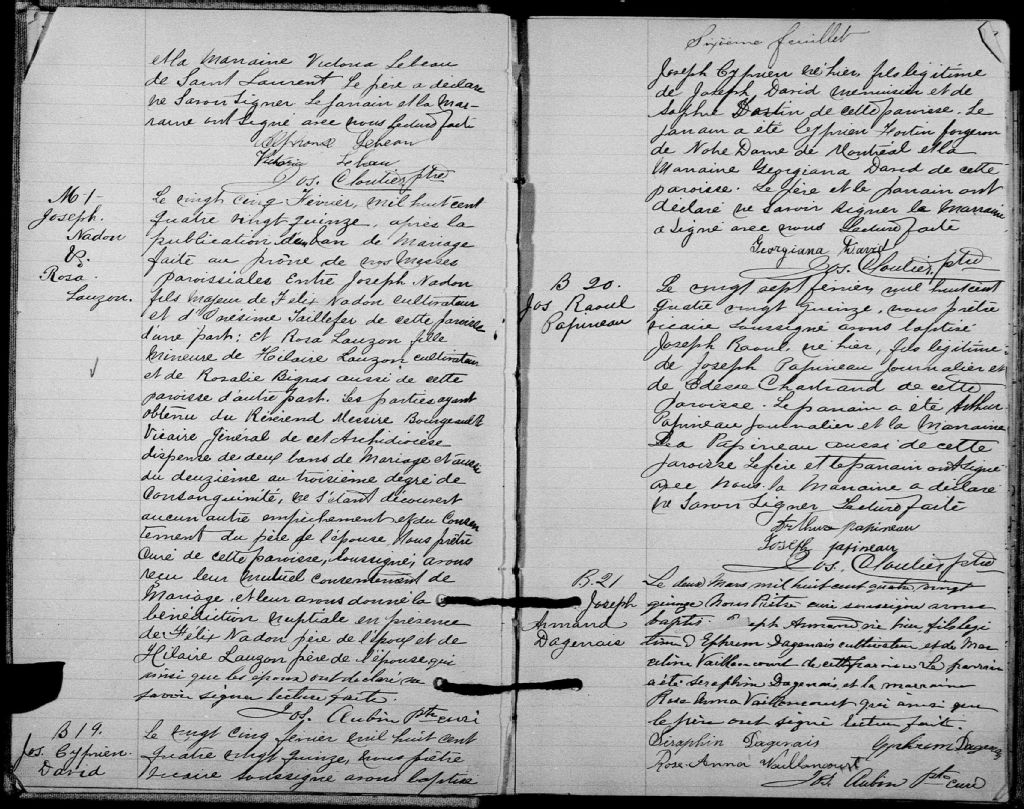 et la Marraine Victoria Lebeau
de Saint Laurent Le père a déclaré
ne Savoir Signer Le parrain et la Mar-
raine ont Signé avec nous Lecture faite
Alphonse Lebeau
Victoria Lebeau
Jos. Cloutier ptre
M 1
Joseph.
Nadon
&
Rosa
Lauzon.
Le vingt cinq Février, mil huit cent
quatre vingt quinze, après la
publication d'un ban de Mariage
faite au prône de nos Messes
paroissiales Entre Joseph Nadon
fils Majeur de Felix Nadon cultivateur
et d'Onesime Taillefer de cette paroisse
d'une part; et Rosa Lauzon fille
Mineure de Hilaire Lauzon cultivateur
et de Rosalie Bigras aussi de cette
paroisse d'autre part. Les parties ayant
obtenu du Révérend Messire Bourgeault
Vicaire Général de cet Archidiocèse
dispense de deux bans de Mariage et aussi
du deuxième au troisième degré de
Consanguinité, ne s'étant découvert
aucun autre empêchement et du Consen
tement du père de l'épouse, Nous prêtre
Curé de cette paroisse, Soussigné, avons
reçu leur Mutuel consentement de
Mariage et leur avons donné la
bénédiction nuptiale en présence
de Félix Nadon père de l'époux et de
Hilaire Lauzon père de l'épouse, qui
ainsi que les époux ont déclaré ne
savoir signer lecture faite.
Jos. Aubin Ptre curé
B 19.
Jos. Cyprien
David
Le vingt cinq fevrier mil huit cent
quatre vingt quinze, nous prêtre
vicaire soussigné avons baptisé
Sixième feuillet
Joseph Cyprien né hier, fils légitime
de Joseph David menuisier et de
Sophie Dostin de cette paroisse. Le
parrain a été Cyprien Fortin forgeron
de Notre Dame de Montréal et la
Marraine Georgiana David de cette
paroisse. Le père et le parrain ont
déclaré ne savoir signer la Marraine
a signé avec nous Lecture faite
Georgiana David
Jos. Cloutier, ptre
B 20.
Jos Raoul
Papineau
Le vingt sept fevrier, mil huit cent
quatre vingt quinze, nous prêtre
vicaire soussigné avons baptisé
Joseph Raoul né hier, fils légitime
de Joseph Papineau journalier et
de Edesse Chartrand de cette
paroisse. Le parrain a été Arthur
Papineau journalier et la Marraine
Papineau aussi de cette
paroisse Le père et le parrain ont signé
avec nous la Marraine a déclaré
ne Savoir Signer Lecture faite
Arthur papineau
Joseph papineau
Jos. Cloutier ptre
B. 21
Joseph
Armand
Dagenais
Le deux Mars mil huit cent quatre vingt
quinze Nous Prêtre curé soussigné avons
baptisé Joseph Armand né hier, fils legi
time d'Ephrem Dagenais cultivateur et de Mar
celine Vaillancourt de cette paroisse Le parrain
a été Seraphin Dagenais et la marraine
Rose Anna Vaillancourt qui ainsi que
le père ont signé lecture faite.
Séraphin Dagenais
Ephrem Dagenais
Rose-Anna Vaillancourt
Jos Aubin Ptre curé